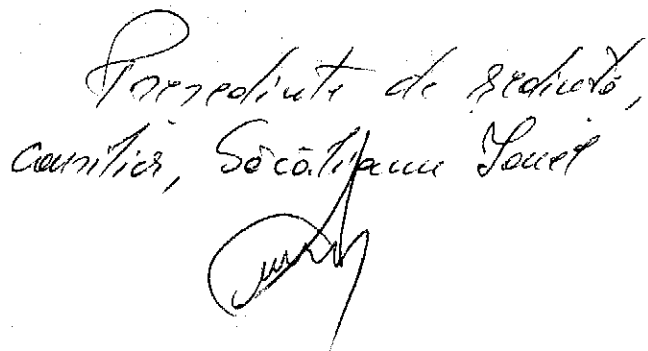 Președinte de ședință,
consilier, Săcălianu Ionel